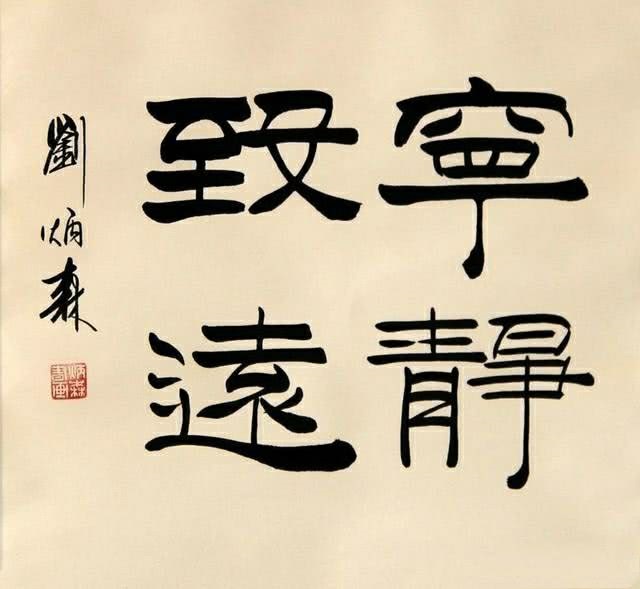 寧靜
致遠
劉炳森
炳森
書画